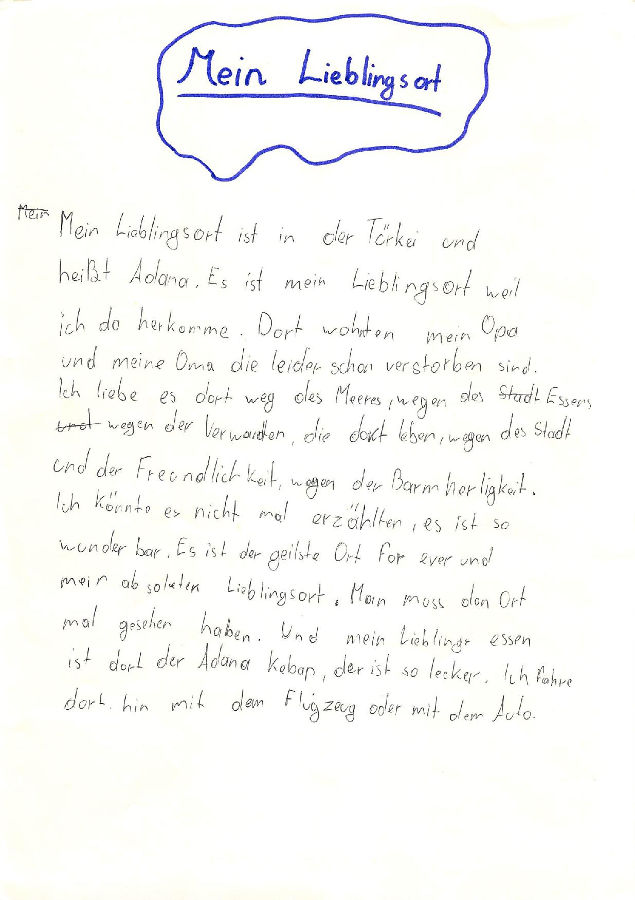 Mein Lieblingsort
Mein Mein Lieblingsort ist in der Türkei und
heißt Adana. Es ist mein Lieblingsort weil
ich da herkomme. Dort wohnten mein Opa
und meine Oma die leider schon verstorben sind.
Ich liebe es dort weg des Meeres, wegen des Stadt Essens
und wegen der Verwandten, die dort leben, wegen des Stadt
und der Freundlichkeit, wegen der Barmherligkeit.
Ich könnte es nicht mal erzählten, es ist so
wunder bar. Es ist der geilste Ort For ever und
mein absoluten Lieblingsort. Man muss den Ort
mal gesehen haben. Und mein Lieblings essen
ist dort der Adana Kebap, der ist so lecker. Ich fahre
dort hin mit dem Flugzeug oder mit dem Auto.